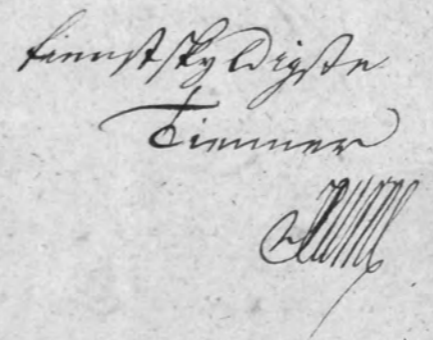 tienstskyldigste
Tienner